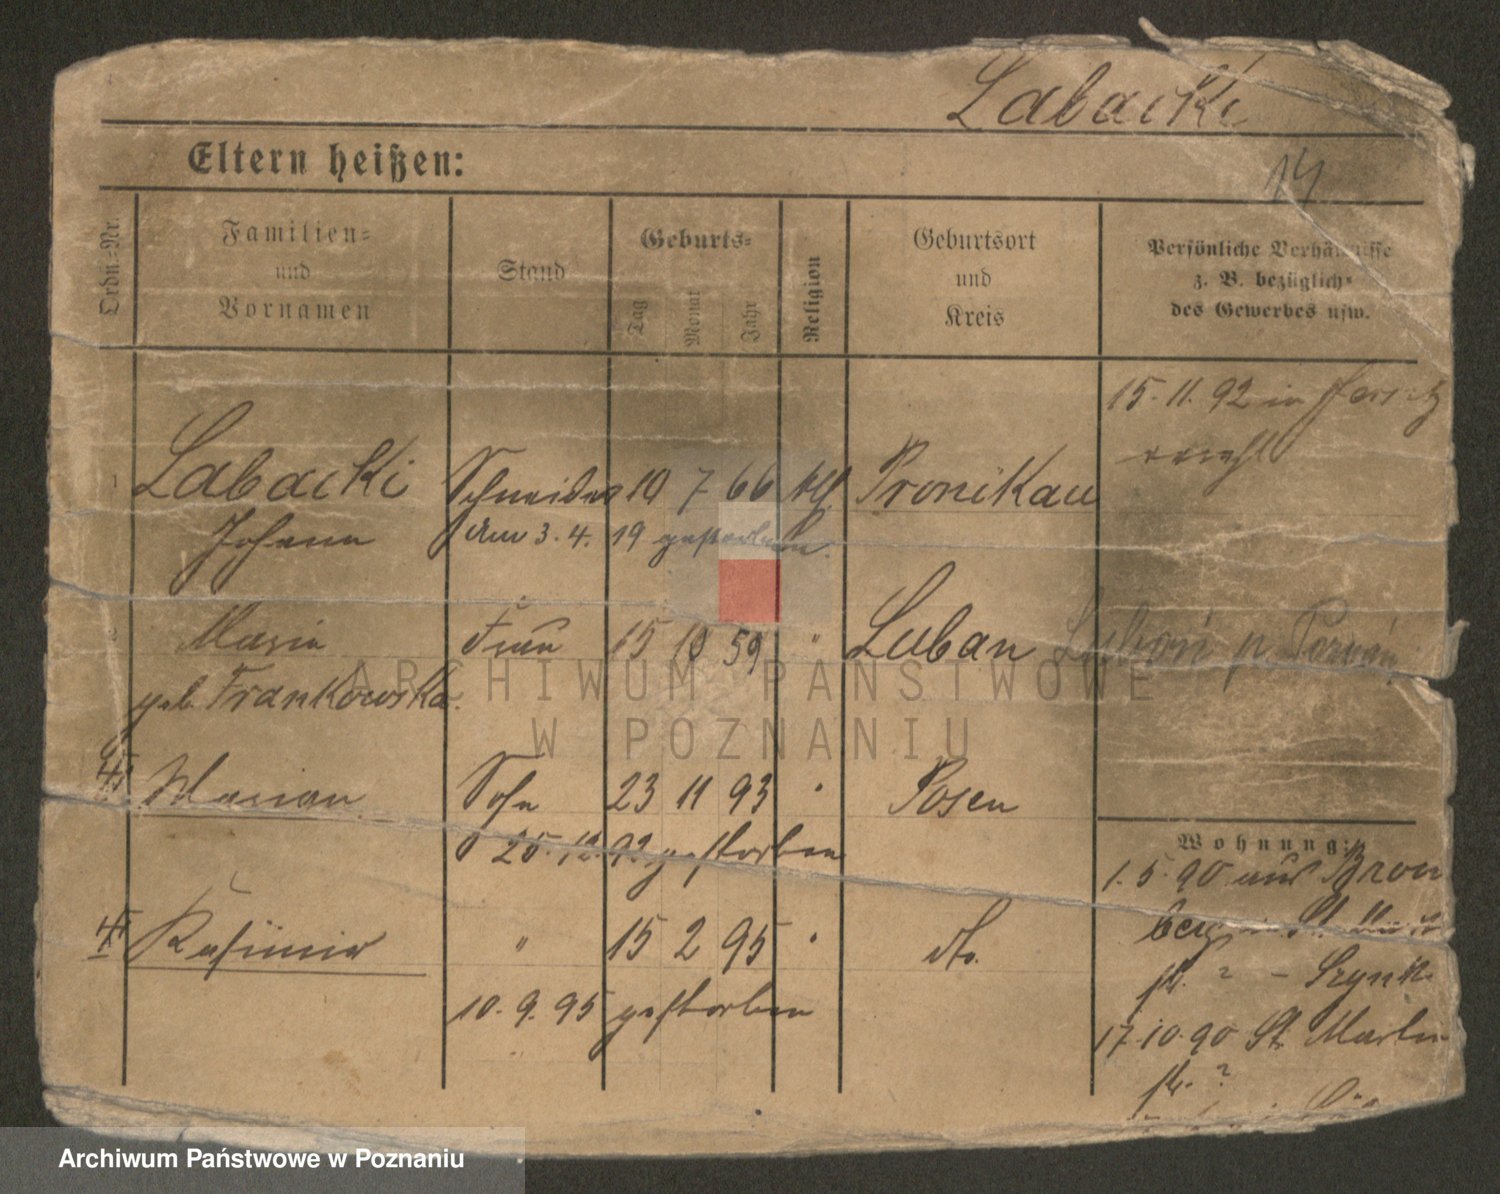 Labacki
Eltern heißen:
14
Ordn.-Nr.
Familien-
und
Vornamen
Stand
Geburts-
Tag
Monat
Jahr
Religion
Geburtsort
und
Kreis
Persönliche Verhältnisse
z. B. bezüglich
des Gewerbes usw.
15. 11. 92 in
1 Labacki Schneider 19 7 66 kth. Pronikau
Johann Am 3. 4. 19 gestorben.
Maria Frau 15 10 59 " Luban Luboń p. Poznań
geb. Frankowska.
Marian Sohn 23 11 93 " Posen
25. 12. 93 gestorben
Kasimir " 15 2 95 " do.
10. 9. 95 gestorben
Wohnung:
1. 5. 90 aus Brom
berg
str. ? -
17. 10. 90 St. Martin
str. ?
ARCHIWUM PAŃSTWOWE
W POZNANIU
Archiwum Państwowe w Poznaniu